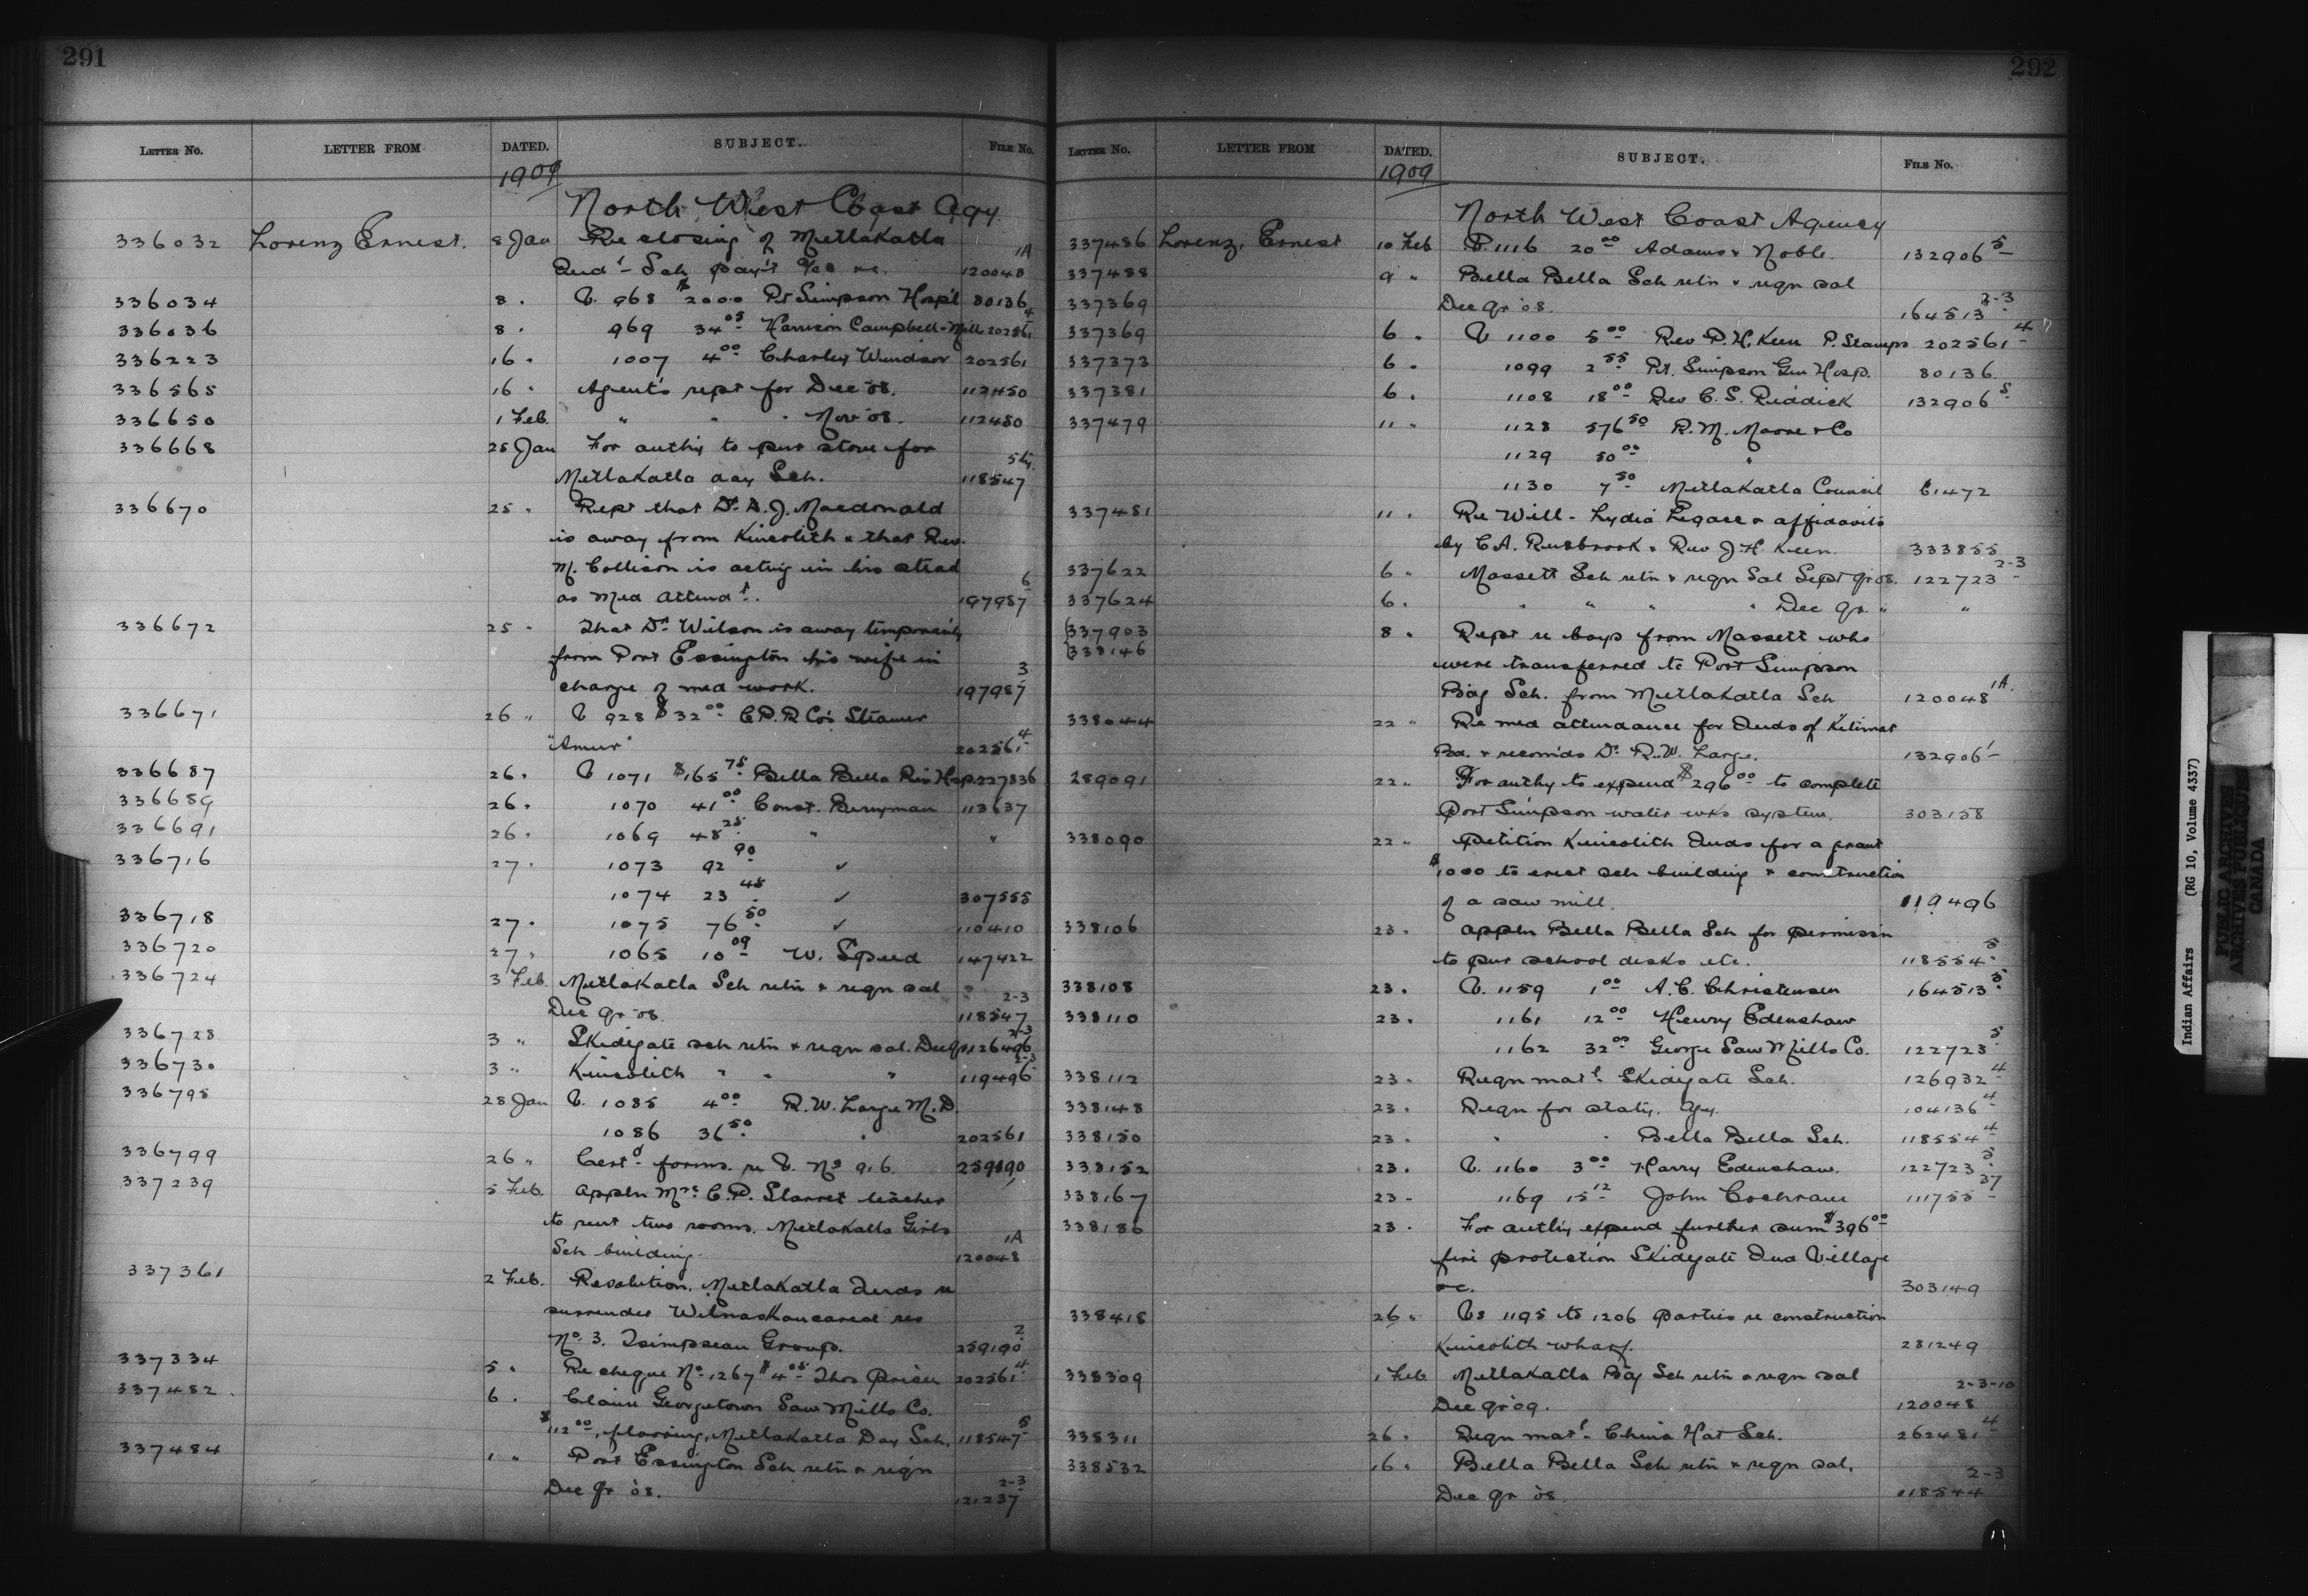 291
LETTER NO. LETTER FROM DATED. SUBJECT. FILE NO.
1909
North West Coast Agy
336032 Lorenz Ernest. 8 Jan Re closing of Metlakatla 1A
Indl Sch pay't &c. 120048
336034 8 " V. 968 $2000 Pt Simpson Hosp'l 80136
336036 8 " 969 34 05 Harrison Campbell - Mill 202561 4
336223 16 " 1007 4 00 Charley Windsor 202561
336565 16 " Agent's rept for Dec '08. 112450
336650 1 Feb. " " " Nov '08. 112450
336668 25 Jan For authy to pur stove for
Metlakatla day Sch. 118547
336670 25 " Rept that Dr D. J. Macdonald
is away from Kincolith & that Rev.
M. Collison is acting in his stead
as Med attendt. 197987 6
336672 25 " That Dr Wilson is away temporarily
from Port Essington his wife in
charge of med work. 197987 3
336671 26 " V 928 $32 00 C.P.R Co's Steamer
"Amur" 202561 4
336687 26 " V 1071 $165 75 Bella Bella Riv Hsp. 227836
336689 26 " 1070 41 00 Const. Berryman 113637
336691 26 " 1069 48 25 " "
336716 27 " 1073 92 90 ✓
1074 23 48 ✓ 307555
336718 27 " 1075 76 50 ✓ 110410
336720 27 " 1065 10 09 W. Speed 147422
336724 3 Feb. Metlakatla Sch retn & reqn sal 2-3
Dec qr '08. 118547
336728 3 " Skidegate sch retn & reqn sal. Dec qr 126496 2-3
336730 3 " Kincolith " " " 119496 2-3
336798 28 Jan V. 1085 4 00 R. W. Large M. D.
1086 36 50 " 202561
336799 26 " Certd forms re V. No 916. 259190
337239 5 Feb. Appln Mrs C. P. Starret teacher
to rent two rooms. Metlakatla Girls
Sch building. 120048 1A
337361 2 Feb. Resolution. Metlakatla Inds re
surrender Wilnaskancaud res
No. 3. Tsimpsean Group. 259190 2
337334 5 " Re cheque No 1267 $4 05 Thos Price 202561 4
337482 6 " Claim Georgetown Saw Mills Co.
$112 00, flooring, Metlakatla Day Sch. 118547 5
337484 1 " Port Essington Sch retn & reqn
Dec qr '08. 121237 2-3
292
LETTER NO. LETTER FROM DATED. SUBJECT. FILE NO.
1909
North West Coast Agency
337486 Lorenz, Ernest 10 Feb V. 1116 20 00 Adams & Noble. 132906 5
337488 9 " Bella Bella Sch retn & reqn sal
337369 Dec qr '08. 164513 2-3
337369 6 " V 1100 5 00 Rev P. H. Keen P. Stamps 202561 4
337373 6 " 1099 2 55 Pt. Simpson Gen Hosp. 80136
337381 6 " 1108 18 00 Rev C. S. Reddick 132906 5
337479 11 " 1128 576 50 R. M. Moore & Co
1129 50 00 "
1130 7 50 Metlakatla Council 61472
337481 11 " Re Will - Lydia Legace & affidavits
by C. A. Rushbrook & Rev J. H. Keen. 333855
337622 6 " Massett Sch retn & reqn Sal Sept qr 08. 122723 2-3
337624 6 " " " " " Dec qr. " "
337903 8 " Rept re boys from Massett who
338146 were transferred to Port Simpson
Bdg Sch. from Metlakatla Sch 120048 1A
338044 22 " Re med attendance for Inds of Kitimat
Bd. & recomds Dr R. W. Large. 132906 1
289091 22 " For authy to expend $296 00 to complete
Port Simpson water wks system. 303158
338090 22 " Petition Kincolith Inds for a grant
$1000 to erect sch building & construction
of a saw mill. 119496
338106 23 " Appln Bella Bella Sch for permissn
to pur school desks etc. 118554 5
338108 23 " V. 1159 1 00 A. C. Christensen 164513 5
338110 23 " 1161 12 00 Henry Edenshaw
1162 32 00 George Saw Mills Co. 122723 5
338112 23 " Reqn matl Skidegate Sch. 126932 4
338148 23 " Reqn for staty. Agy. 104136 4
338150 23 " " " Bella Bella Sch. 118554 4
338152 23 " V. 1160 3 00 Harry Edenshaw. 122723 5
338167 23 " 1169 15 12 John Cochrane 111755 37
338186 23 " For authy expend further sum $396 00
fire protection Skidegate Ind Village
&c. 303149
338418 26 " Vs 1195 to 1206 parties re construction
Kincolith wharf. 281249
338309 1 Feb Metlakatla Bdg Sch retn & reqn sal 2-3-10
Dec qr '09. 120048
338311 26 " Reqn matl China Hat Sch. 262481 4
338532 16 " Bella Bella Sch retn & reqn sal. 2-3
Dec qr '08. 118544
Indian Affairs (RG 10, Volume 4337)
PUBLIC ARCHIVES
ARCHIVES PUBLIQUES
CANADA